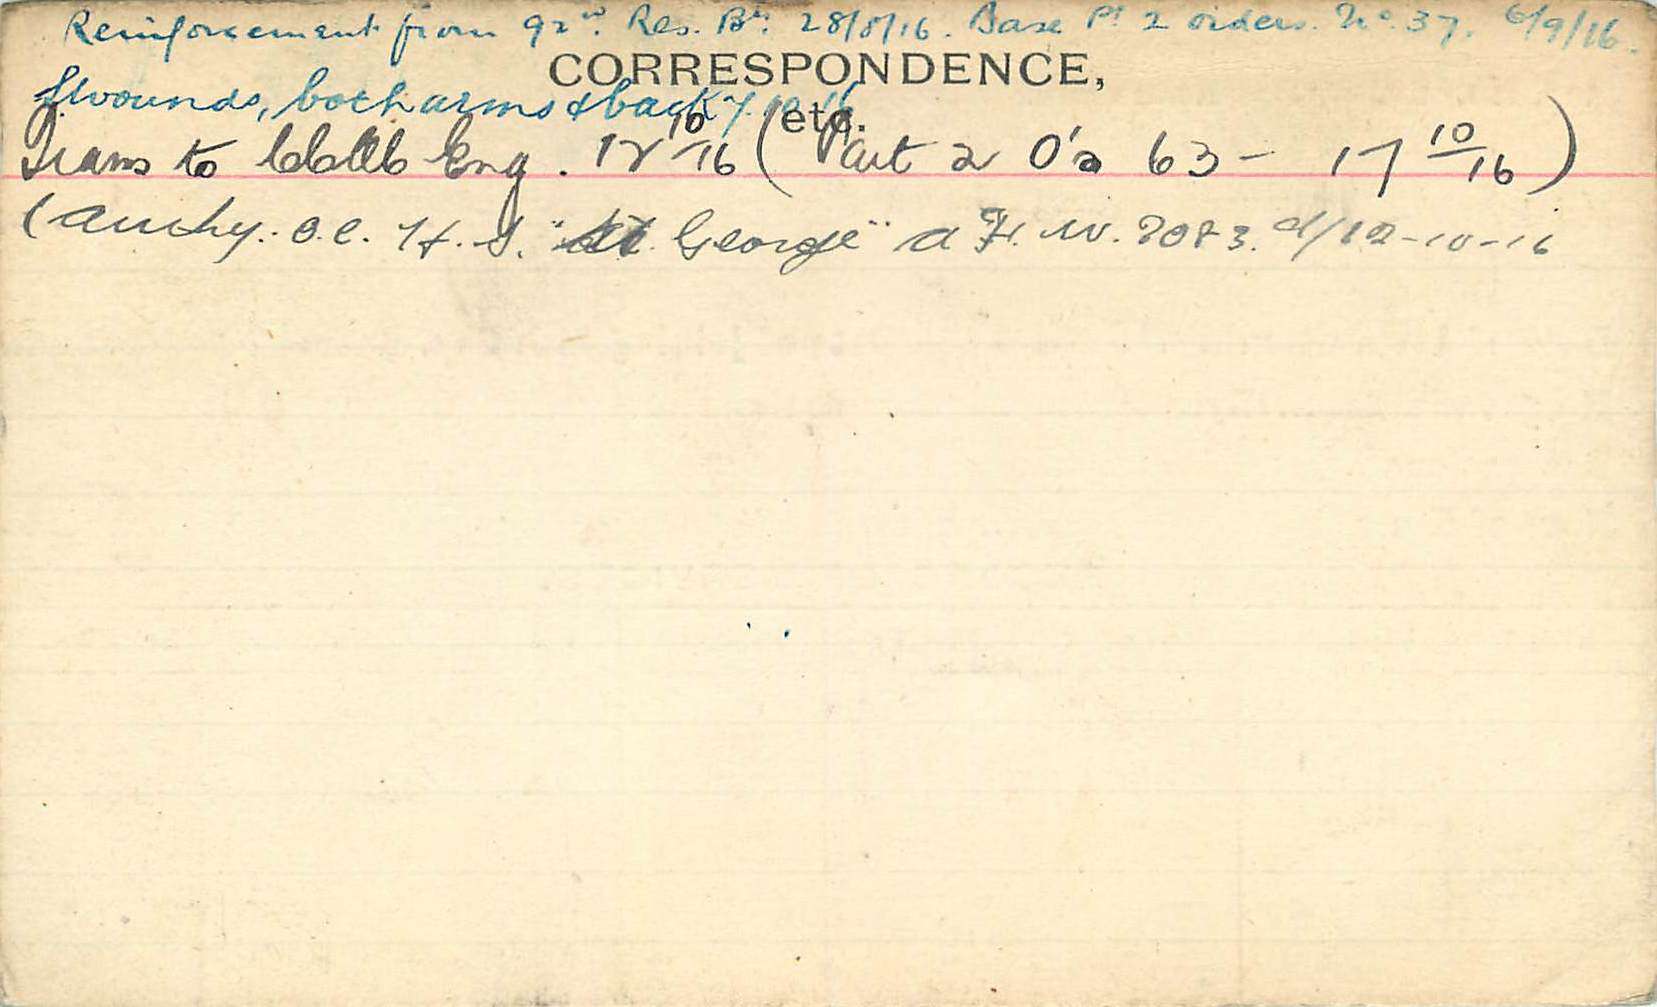 Reinforcement from 92nd. Res. Bn. 28/8/16. Base Pt 2 orders. No. 37. 6/9/16.
CORRESPONDENCE,
wounds, both arms & back
etc.
Trans to CCAC Eng. 12 10/16 (Part 2 O's 63 - 17 10/16)
(Authy. O.C. H.S. "St George" A.F. W. 3083. d/12-10-16